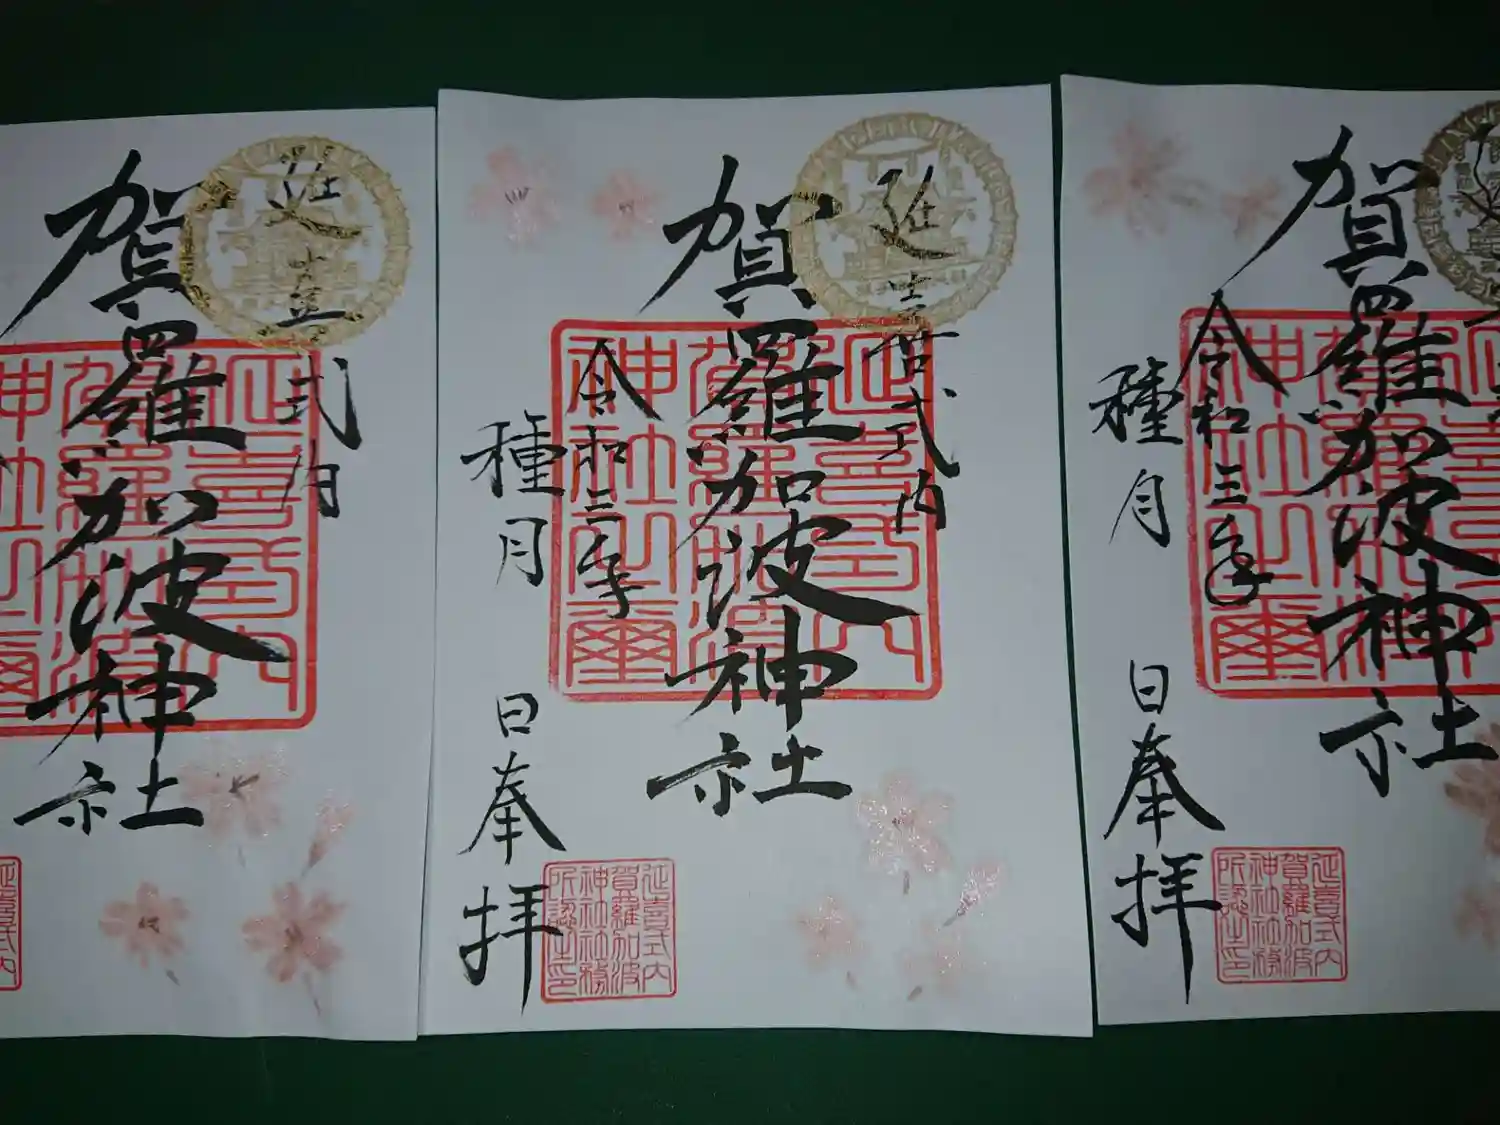 延喜式内
賀羅加波神社
延喜式内
賀羅加波神社
令和三年
種月 日奉拝
延喜式内
賀羅加波
神社社務
所認主印
賀羅加波神社
令和三年
種月 日奉拝
延喜式内
賀羅加波
神社社務
所認主印
延喜式内